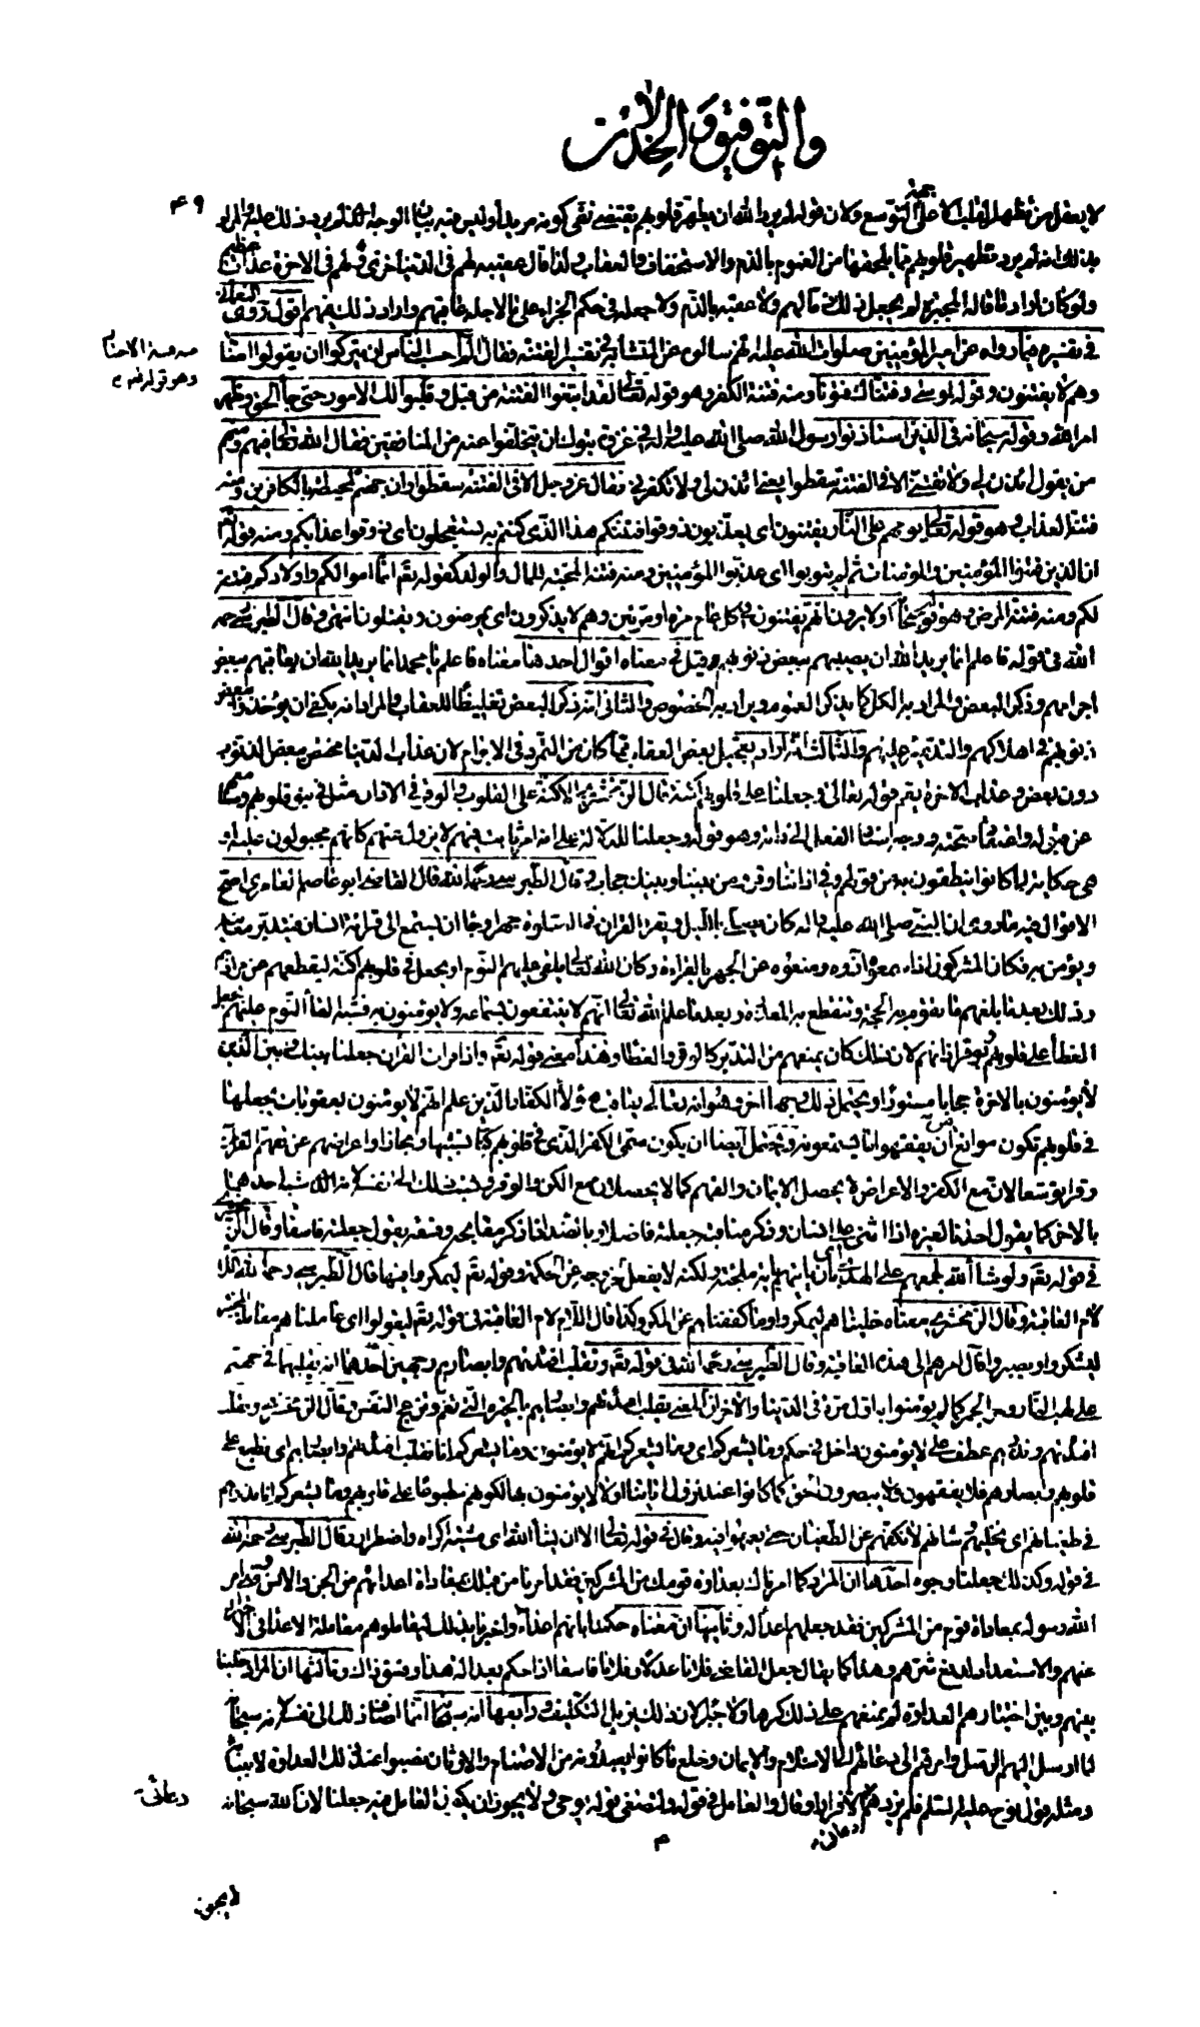 والتوفيق و الخذلان
٤٩
لا يعقل من تطهير القلب الا على جهة التوسع وكان قوله لم يرد الله ان يطهر قلوبهم يقتضي نفي كونه مريدا وليس فيه بيان الوجه الذي لم يرد ذلك عليه المراد
بذلك انه لم يرد تطهير قلوبهم مما يلحقها من الغموم بالذم والاستخفاف والعقاب ولذا قال عقيبه لهم في الدنيا خزي ولهم في الاخرة عذاب عظيم
ولو كان اراد ما قاله المجبرة لم يجعل ذلك ولا عقبه بالذم ولا جعله في حكم الجزاء على ما لاجله عاقبهم واراد ذلك فيهم اقول روى النعماني
في تفسيره فيما رواه عن امير المؤمنين صلوات الله عليه سالوه عن المتشابه في تفسير الفتنة فقال الم احسب الناس ان يتركوا ان يقولوا امنا
وهم لا يفتنون وقوله لموسى وفتناك فتونا ومنه فتنة الكفر وهو قوله تعالى لقد ابتغوا الفتنة من قبل وقلبوا لك الامور حتى جاء الحق وظهر
امر الله وقوله سبحانه في الذين استاذنوا رسول الله صلى الله عليه واله في غزوة تبوك ان يتخلفوا عنه من المنافقين فقال الله تعالى فيهم ومنهم
من يقول ائذن لي ولا تفتني الا في الفتنة سقطوا يعني ائذن لي ولا تكفرني فقال عز وجل الا في الفتنة سقطوا وان جهنم لمحيطة بالكافرين ومنه
فتنة العذاب وهو قوله تعالى يوم هم على النار يفتنون اي يعذبون ذوقوا فتنتكم هذا الذي كنتم به تستعجلون اي ذوقوا عذابكم ومنه قوله تعالى
ان الذين فتنوا المؤمنين والمؤمنات ثم لم يتوبوا اي عذبوا المؤمنين ومنه فتنة المحبة للمال والولد كقوله تعالى انما اموالكم واولادكم فتنة
لكم ومنه فتنة المرض وهو قوله سبحانه اولا يرون انهم يفتنون في كل عام مرة او مرتين وهم لا يذكرون اي يمرضون ويفتنون انتهى وقال الطبرسي رحمه
الله في قوله فاعلم انما يريد الله ان يصيبهم ببعض ذنوبهم قيل في معناه اقوال احدها معناه فاعلم يا محمد انما يريد الله ان يعاقبهم ببعض
اجرامهم وذكر البعض والمراد به الكل كما يذكر العموم ويراد به الخصوص والثاني انه ذكر البعض تغليظا للعقاب والمراد انه يكفي ان يؤخذوا ببعض
ذنوبهم في اهلاكهم والتدمير عليهم والثالث انه اراد تعجيل بعض العقاب بما كان من التمرد في الاجرام لان عذاب الدنيا مختص ببعض الذنوب
دون بعض وعذاب الاخرة يعم قوله تعالى وجعلنا على قلوبهم اكنة قال الزمخشري الاكنة على القلوب والوقر في الاذان مثل في نبو قلوبهم ومسامعهم
عن قبوله واعتقاد صحته ووجه اسناد الفعل الى ذاته وهو قوله وجعلنا للدلالة على انه امر ثابت فيهم لا يزول عنهم كانهم مجبولون عليه او
هي حكاية لما كانوا ينطقون به من قولهم وفي اذاننا وقر ومن بيننا وبينك حجاب وقال الطبرسي رحمه الله قال القاضي ابو عاصم العامري اصح
الاقوال فيه ما روي ان النبي صلى الله عليه واله كان يصلي بالليل ويقرا القران في الصلوة جهرا رجاء ان يستمع الى قراءته انسان فيتدبر معانيه
ويؤمن به فكان المشركون اذا سمعوه آذوه ومنعوه عن الجهر بالقراءة وكان الله تعالى يلقي عليهم النوم او يجعل في قلوبهم اكنة ليقطعهم عن مرادهم
وذلك بعد ما بلغهم ما تقوم به الحجة وتنقطع به المعذرة وبعد ما علم الله تعالى انهم لا ينتفعون بسماعه ولا يؤمنون به فشبه القاء النوم عليهم بجعل
الغطاء على قلوبهم وبوقر اذانهم لان ذلك كان يمنعهم من التدبر كالوقر والغطاء وهذا معنى قوله تعالى واذا قرات القران جعلنا بينك وبين الذين
لا يؤمنون بالاخرة حجابا مستورا ويحتمل ذلك وجها اخر وهو انه يعاقب هؤلاء الكفار الذين علم انهم لا يؤمنون بعقوبات يجعلها
في قلوبهم تكون موانع من ان يفقهوا ما يستمعونه ويحتمل ايضا ان يكون سمى الكفر الذي في قلوبهم كنا تشبيها ومجازا واعراضهم عن تفهم القران
وقرا توسعا لان مع الكفر والاعراض لا يحصل الايمان والفهم كما لا يحصلان مع الكن والوقر ونسب ذلك الى نفسه لانه الذي شبه احدهما
بالاخر كما يقول احدنا لغيره اذا اثنى على انسان وذكر مناقبه جعلته فاضلا وبالضد اذا ذكر مقابحه وفسقه يقول جعلته فاسقا وقال الزمخشري
في قوله تعالى ولو شاء الله لجمعهم على الهدى بان ياتيهم باية ملجئة ولكنه لا يفعل لخروجه عن الحكمة وقوله تعالى ليمكروا فيها قال الطبرسي رحمه الله اللام
لام العاقبة وقال الزمخشري معناه خليناهم ليمكروا وما كففناهم عن المكر وكذا قال اللام لام العاقبة في قوله تعالى ليقولوا اي عاملناهم معاملة المختبر
ليشكروا او يصبروا فآل امرهم الى هذه العاقبة وقال الطبرسي رحمه الله في قوله تعالى ونقلب افئدتهم وابصارهم وجهين احدهما انه يقلبها في جهنم
على لهب النار وحر الجمر كما لم يؤمنوا به اول مرة في الدنيا والاخر ان المعنى نقلب افئدتهم وابصارهم بالحيرة التي تغم وتزعج النفس وقال الزمخشري ونقلب
افئدتهم ونذرهم عطف على لا يؤمنون داخل في حكم وما يشعركم اي وما يشعركم انهم لا يؤمنون وما يشعركم انا نقلب افئدتهم وابصارهم اي نطبع على
قلوبهم وابصارهم فلا يفقهون ولا يبصرون الحق كما كانوا عند نزول اياتنا اولا لا يؤمنون بها لكونهم مطبوعا على قلوبهم وما يشعركم انا نذرهم
في طغيانهم اي نخليهم وشانهم لا نكفهم عن الطغيان حتى يعمهوا فيه وقال في قوله تعالى الا ان يشاء الله اي مشية اكراه واضطرار وقال الطبرسي رحمه الله
في قوله وكذلك جعلنا وجوه احدها ان المراد كما امرناك بعداوة قومك من المشركين فقد امرنا من قبلك بمعاداة اعدائهم من الجن والانس ومتى امر
الله رسوله بمعاداة قوم من المشركين فقد جعلهم اعداء له وثانيها ان معناه حكمنا بانهم اعداء واخبرنا بذلك ليعاملوهم معاملة الاعداء في الاحتراز
عنهم والاستعداد لدفع شرهم وهذا كما يقال جعل القاضي فلانا عدلا وفلانا فاسقا اذا حكم بعدالة هذا وفسق ذاك وثالثها ان المراد خلينا
بينهم وبين اختيارهم العداوة لم نمنعهم على ذلك كرها ولا جبرا لان ذلك يزيل التكليف ورابعها انه سبحانه انما اضاف ذلك الى نفسه لانه سبحانه
لما ارسل اليهم الرسل وامرهم الى دعائهم الى الاسلام والايمان وخلع ما كانوا يعبدونه من الاصنام والاوثان نصبوا عند ذلك العداوة لانبيائه
ومثله قول نوح عليه السلم فلم يزدهم دعائي الا فرارا وقال والعامل في قوله ولتصغى قوله يوحي ولا يجوز ان يكون العامل فيه جعلنا لان الله سبحانه
لا يجوز